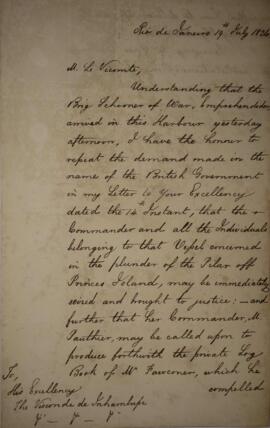 Rio de Janeiro 19th July 1826
M. Le Vicomte,
Understanding that the
Brig Schooner of War, Emprehendedor,
arrived in this Harbour yesterday
afternoon, I have the honour to
repeat the demand made in the
name of the British Government
in my Letter to Your Excellency
dated the 14th Instant, that the
Commander and all the Individuals
belonging to that Vessel concerned
in the plunder of the Pilar off
Princes Island, may be immediately
seized and brought to justice: — and
further that her Commander, M.
Pauthier, may be called upon to
produce forthwith the private Log
Book of Mr Fawconer, which he
compelled
To,
His Excellency
The Visconde de Inhambupe